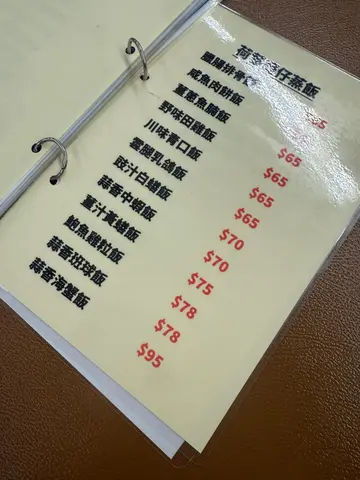 荷葉籠仔蒸飯
臘腸排骨
咸魚肉餅飯
薑蔥魚腩飯 $65
野味田雞飯 $65
川味青口飯 $65
雲腿乳鴿飯 $65
豉汁白鱔飯 $70
蒜香中蝦飯 $70
薑汁黃鱔飯 $75
鮑魚雞飯 $78
蒜香班球飯 $78
蒜香海蟹飯 $95